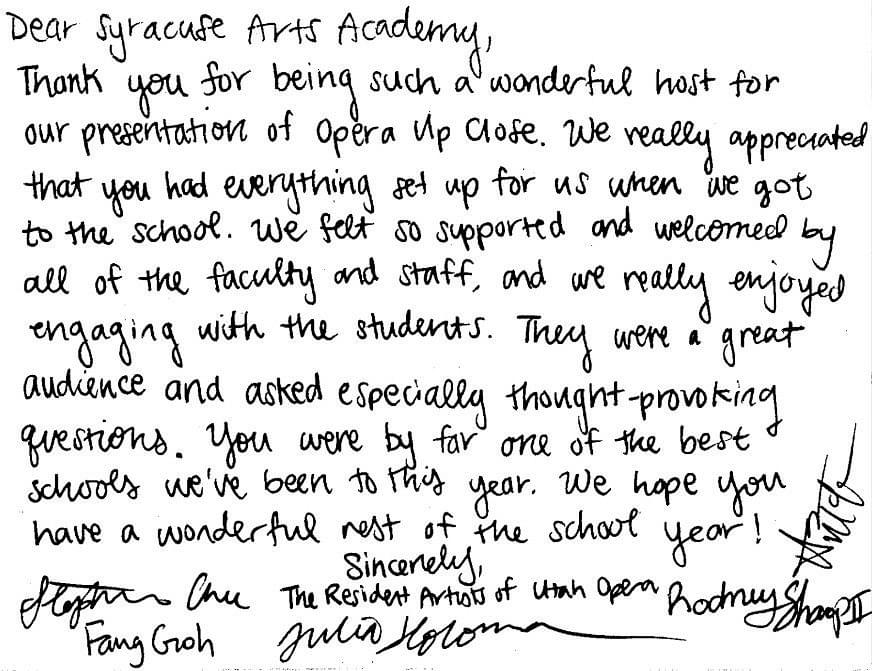 Dear Syracuse Arts Academy,
Thank you for being such a wonderful host for
our presentation of Opera Up Close. We really appreciated
that you had everything set up for us when we got
to the school. We felt so supported and welcomed by
all of the faculty and staff, and we really enjoyed
engaging with the students. They were a great
audience and asked especially thought-provoking
questions. You were by far one of the best
schools we've been to this year. We hope you
have a wonderful rest of the school year!
Sincerely,
The Resident Artists of Utah Opera
Rodney Sharp II
Chu
Fang Groh
Julia